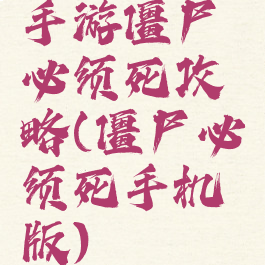 手游僵尸
必须死攻
略(僵尸必
须死手机
版)